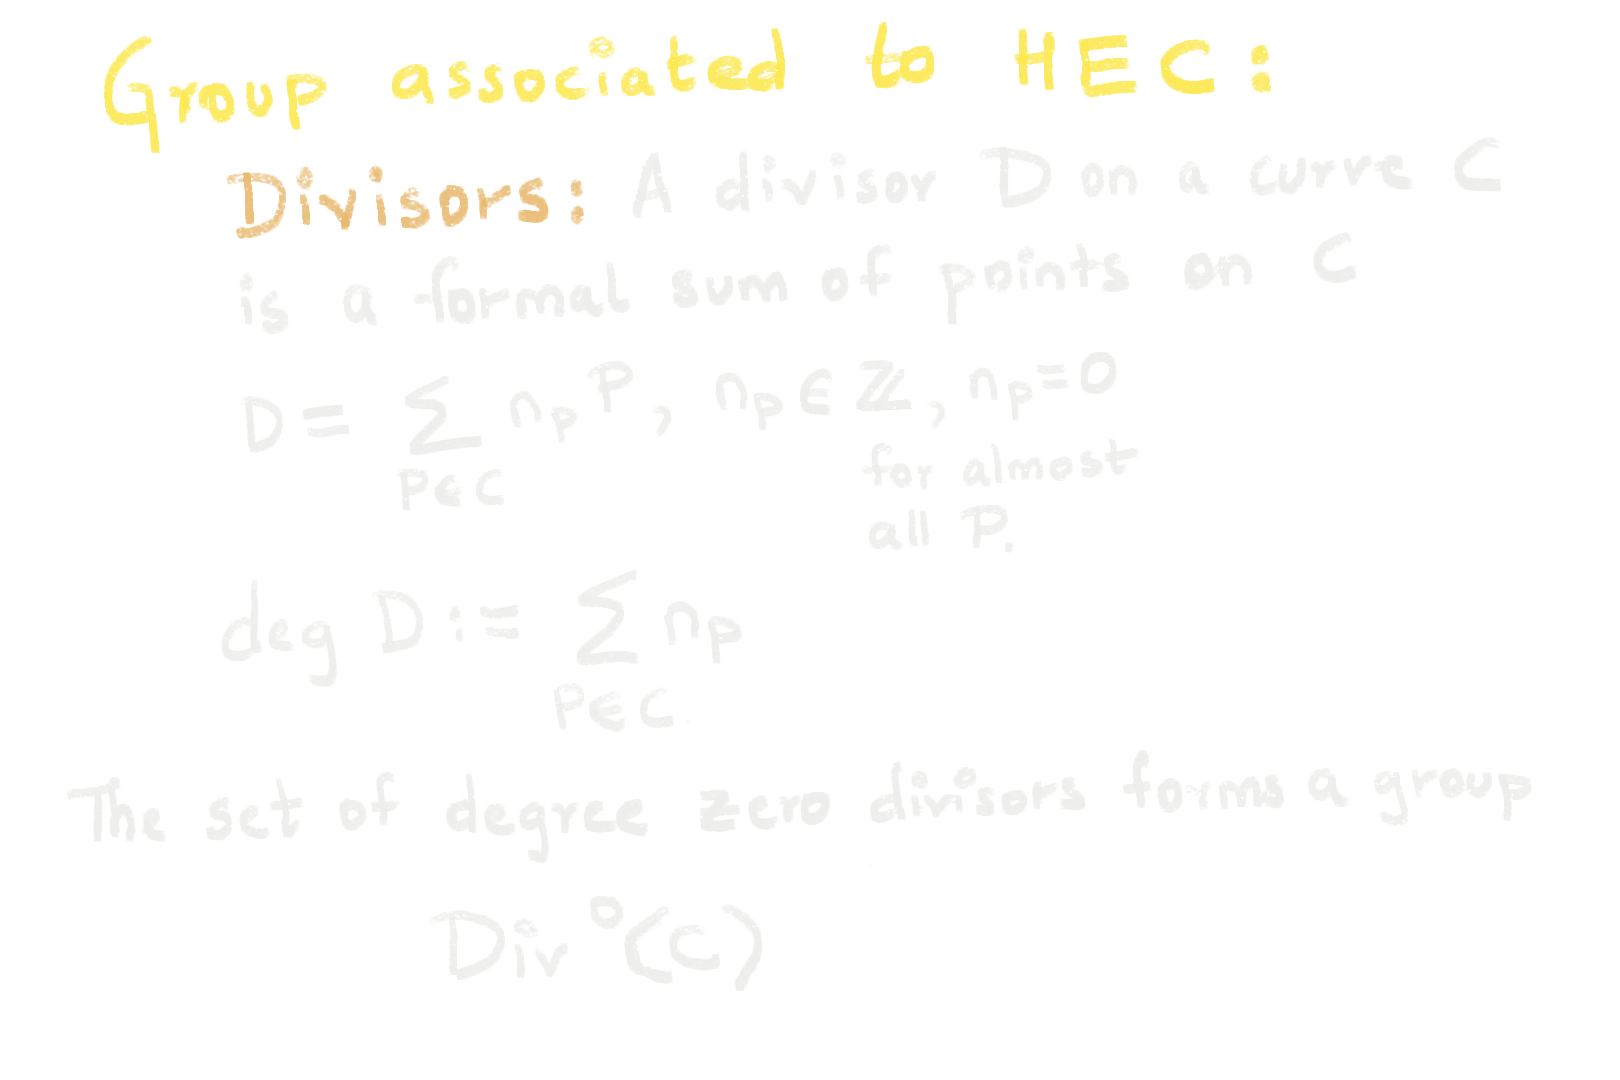 Group associated to HEC:
Divisors: A divisor D on a curve C
is a formal sum of points on C
D = ∑ n_p P, n_p ∈ ℤ, n_p = 0
P∈C
for almost
all P.
deg D := ∑ n_p
P∈C
The set of degree zero divisors forms a group
Div°(C)